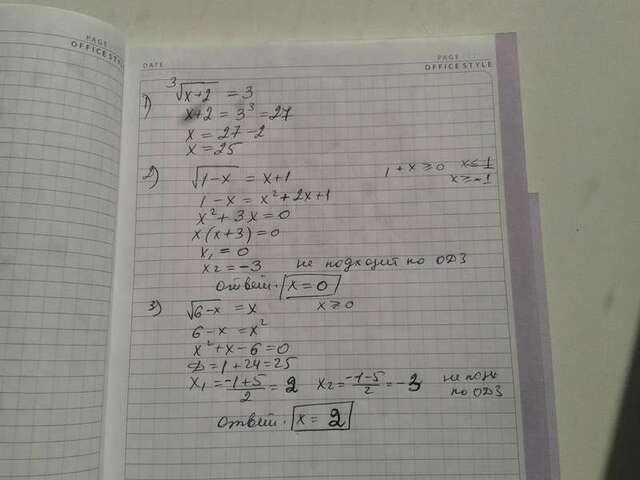 PAGE
OFFICE STYLE
DATE
PAGE
OFFICE STYLE
1) ³√x+2 = 3
x+2 = 3³ = 27
x = 27 - 2
x = 25
2) √1-x = x+1 1+x ≥ 0 x ≤ 1
x ≥ -1
1-x = x²+2x+1
x²+3x=0
x(x+3)=0
x₁ = 0
x₂ = -3 не подходит по ОДЗ
ответ. x = 0
3) √6-x = x x ≥ 0
6-x = x²
x²+x-6=0
D=1+24=25
x₁ = -1+5/2 = 2 x₂ = -1-5/2 = -3 не
по ОДЗ
ответ. x = 2